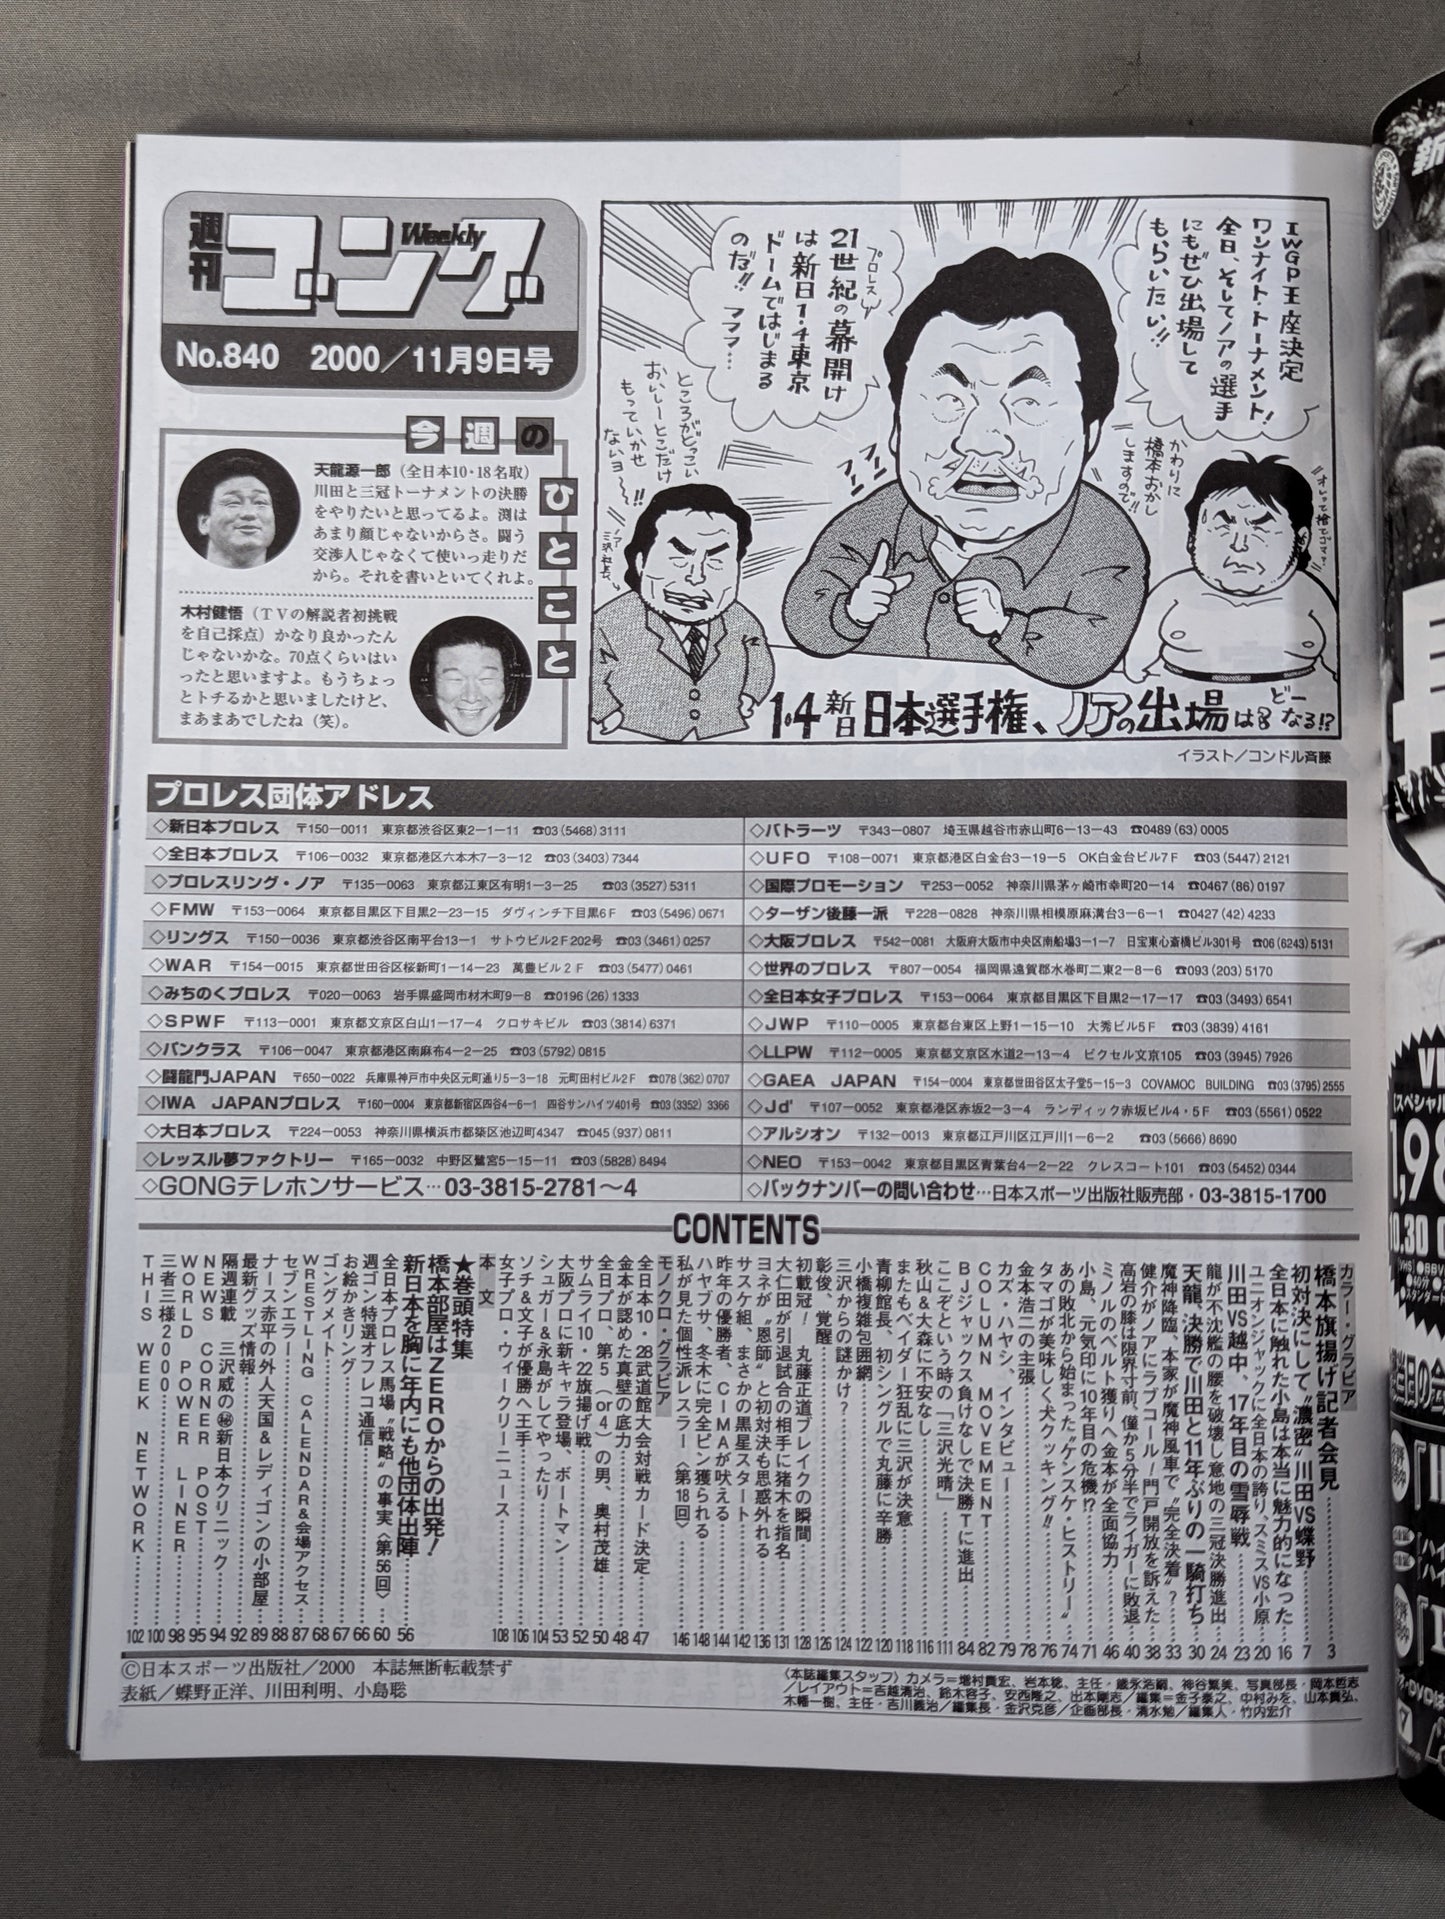 週刊ゴング
Weekly
No.840 2000／11月9日号
今週のひとこと
天龍源一郎（全日本10・18名取）
川田と三冠トーナメントの決勝
をやりたいと思ってるよ。渕は
あまり顔じゃないからさ。闘う
交渉人じゃなくて使いっ走りだ
から。それを書いといてくれよ。
木村健悟（TVの解説者初挑戦
を自己採点）かなり良かったん
じゃないかな。70点くらいはい
ったと思いますよ。もうちょっ
とトチるかと思いましたけど、
まあまあでしたね（笑）。
IWGP王座決定
ワンナイト・トーナメント！
全日、そしてノアの選手
にもぜひ出場して
もらいたい!!
プロレス
21世紀の幕開け
は新日1・4東京
ドームではじまる
のだ!! フフフ…
ところがどっこい
おいしーとこだけ
もっていかせ
ないヨ〜!!
ノア
三沢社長
かわりに
橋本おかし
しますので!!
1・4新日日本選手権、ノアの出場はどーなる!?
イラスト／コンドル斉藤
プロレス団体アドレス
◇新日本プロレス 〒150－0011 東京都渋谷区東2－1－11 ☎03(5468)3111
◇全日本プロレス 〒106－0032 東京都港区六本木7－3－12 ☎03(3403)7344
◇プロレスリング・ノア 〒135－0063 東京都江東区有明1－3－25 ☎03(3527)5311
◇FMW 〒153－0064 東京都目黒区下目黒2－23－15 ダヴィンチ下目黒6F ☎03(5496)0671
◇リングス 〒150－0036 東京都渋谷区南平台13－1 サトウビル2F202号 ☎03(3461)0257
◇WAR 〒154－0015 東京都世田谷区桜新町1－14－23 萬豊ビル2F ☎03(5477)0461
◇みちのくプロレス 〒020－0063 岩手県盛岡市材木町9－8 ☎0196(26)1333
◇SPWF 〒113－0001 東京都文京区白山1－17－4 クロサキビル ☎03(3814)6371
◇パンクラス 〒106－0047 東京都港区南麻布4－2－25 ☎03(5792)0815
◇闘龍門JAPAN 〒650－0022 兵庫県神戸市中央区元町通り5－3－18 元町田村ビル2F ☎078(362)0707
◇IWA JAPANプロレス 〒160－0004 東京都新宿区四谷4－6－1 四谷サンハイツ401号 ☎03(3352)3366
◇大日本プロレス 〒224－0053 神奈川県横浜市都築区池辺町4347 ☎045(937)0811
◇レッスル夢ファクトリー 〒165－0032 中野区鷺宮5－15－11 ☎03(5828)8494
◇GONGテレホンサービス…03-3815-2781〜4
◇バトラーツ 〒343－0807 埼玉県越谷市赤山町6－13－43 ☎0489(63)0005
◇UFO 〒108－0071 東京都港区白金台3－19－5 OK白金台ビル7F ☎03(5447)2121
◇国際プロモーション 〒253－0052 神奈川県茅ヶ崎市幸町20－14 ☎0467(86)0197
◇ターザン後藤一派 〒228－0828 神奈川県相模原麻溝台3－6－1 ☎0427(42)4233
◇大阪プロレス 〒542－0081 大阪府大阪市中央区南船場3－1－7 日宝東心斎橋ビル301号 ☎06(6243)5131
◇世界のプロレス 〒807－0054 福岡県遠賀郡水巻町二東2－8－6 ☎093(203)5170
◇全日本女子プロレス 〒153－0064 東京都目黒区下目黒2－17－17 ☎03(3493)6541
◇JWP 〒110－0005 東京都台東区上野1－15－10 大秀ビル5F ☎03(3839)4161
◇LLPW 〒112－0005 東京都文京区水道2－13－4 ピクセル文京105 ☎03(3945)7926
◇GAEA JAPAN 〒154－0004 東京都世田谷区太子堂5－15－3 COVAMOC BUILDING ☎03(3795)2555
◇Jd' 〒107－0052 東京都港区赤坂2－3－4 ランディック赤坂ビル4・5F ☎03(5561)0522
◇アルシオン 〒132－0013 東京都江戸川区江戸川1－6－2 ☎03(5666)8690
◇NEO 〒153－0042 東京都目黒区青葉台4－2－22 クレスコート101 ☎03(5452)0344
◇バックナンバーの問い合わせ…日本スポーツ出版社販売部・03-3815-1700
CONTENTS
カラー・グラビア
橋本旗揚げ記者会見…3
初対決にして“濃密”川田VS蝶野…7
全日本に触れた小島は本当に魅力的になった…16
ユニオンジャックに全日本の誇り、スミスVS小原…20
川田VS越中、17年目の雪辱戦…23
龍が不沈艦の腰を破壊し意地の三冠決勝進出…24
天龍、決勝で川田と11年ぶりの一騎打ち…30
魔神降臨、本家が魔神風車で“完全決着”?…33
健介がノアにラブコール！門戸開放を訴えた…38
高岩の膝は限界寸前、僅か5分半でライガーに敗退…40
ミノルのベルト獲りへ金本が全面協力…46
小島、元気印に10年目の危機!?…71
あの敗北から始まった“ケンスケ・ヒストリー”…74
タマゴが美味しく犬クッキング!!…76
金本浩二の主張…78
カズ・ハヤシ、インタビュー…79
COLUMN MOVEMENT…82
BJジャックス負けなしで決勝Tに進出…84
ここぞという時の「三沢光晴」…111
秋山＆大森に不安なし…116
またもベイダー狂乱に三沢が決意…118
青柳館長、初シングルで丸藤に辛勝…120
小橋複雑包囲網…122
三沢からの謎かけ?…124
彰俊、覚醒…126
初載冠！ 丸藤正道ブレイクの瞬間…128
大仁田が引退試合の相手に猪木を指名…131
ヨネが“恩師”と初対決も思惑外れる…136
サスケ組、まさかの黒星スタート…142
昨年の優勝者、CIMAが吠える…144
ハヤブサ、冬木に完全ピン獲られる…148
私が見た個性派レスラー〈第18回〉…146
モノクロ・グラビア
全日本10・28武道館大会対戦カード決定…47
金本が認めた真壁の底力…48
全日プロ、第5（or4）の男、奥村茂雄…50
サムライ10・22旗揚げ戦…52
大阪プロに新キャラ登場、ボートマン…53
シュガー＆永島がしてやったり…104
ソチ＆文子が優勝へ王手…106
女子プロ・ウィークリーニュース…108
本文
★巻頭特集
橋本部屋はZEROからの出発！
新日本を胸に年内にも他団体出陣…56
全日本プロレス馬場“戦略”の事実〈第56回〉…60
週ゴン特選オフレコ通信…66
お絵かきリング…67
ゴングメイト…68
WRESTLING CALENDAR＆会場アクセス…87
セブンエラー…88
ナース赤平の外人天国＆レディゴンの小部屋…89
最新グッズ情報…92
隔週連載 三沢威の㊙新日本クリニック…94
NEWS CORNER POST…95
WORLD POWER LINER…98
三者三様2000…100
THIS WEEK NETWORK…102
©日本スポーツ出版社／2000 本誌無断転載禁ず
表紙／蝶野正洋、川田利明、小島聡
〈本誌編集スタッフ〉カメラ＝増村貴宏、岩本稔、主任・歳永浩嗣、神谷繁美、写真部長・岡本哲志
／レイアウト＝吉越清治、鈴木容子、安西隆之、出本剛志／編集＝金子泰之、中村みを、山本貴弘、
木幡一樹、主任・吉川義治／編集長・金沢克彦／企画部長・清水勉／編集人・竹内宏介